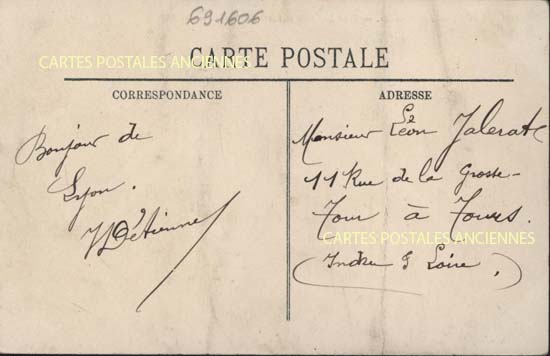 691606
CARTE POSTALE
CARTES POSTALES ANCIENNES
CORRESPONDANCE
Bonjour de
Lyon.
ADRESSE
Monsieur Léon
11 Rue de la Grosse-
Tour à Tours.
CARTES POSTALES ANCIENNES
(Indre & Loire,)